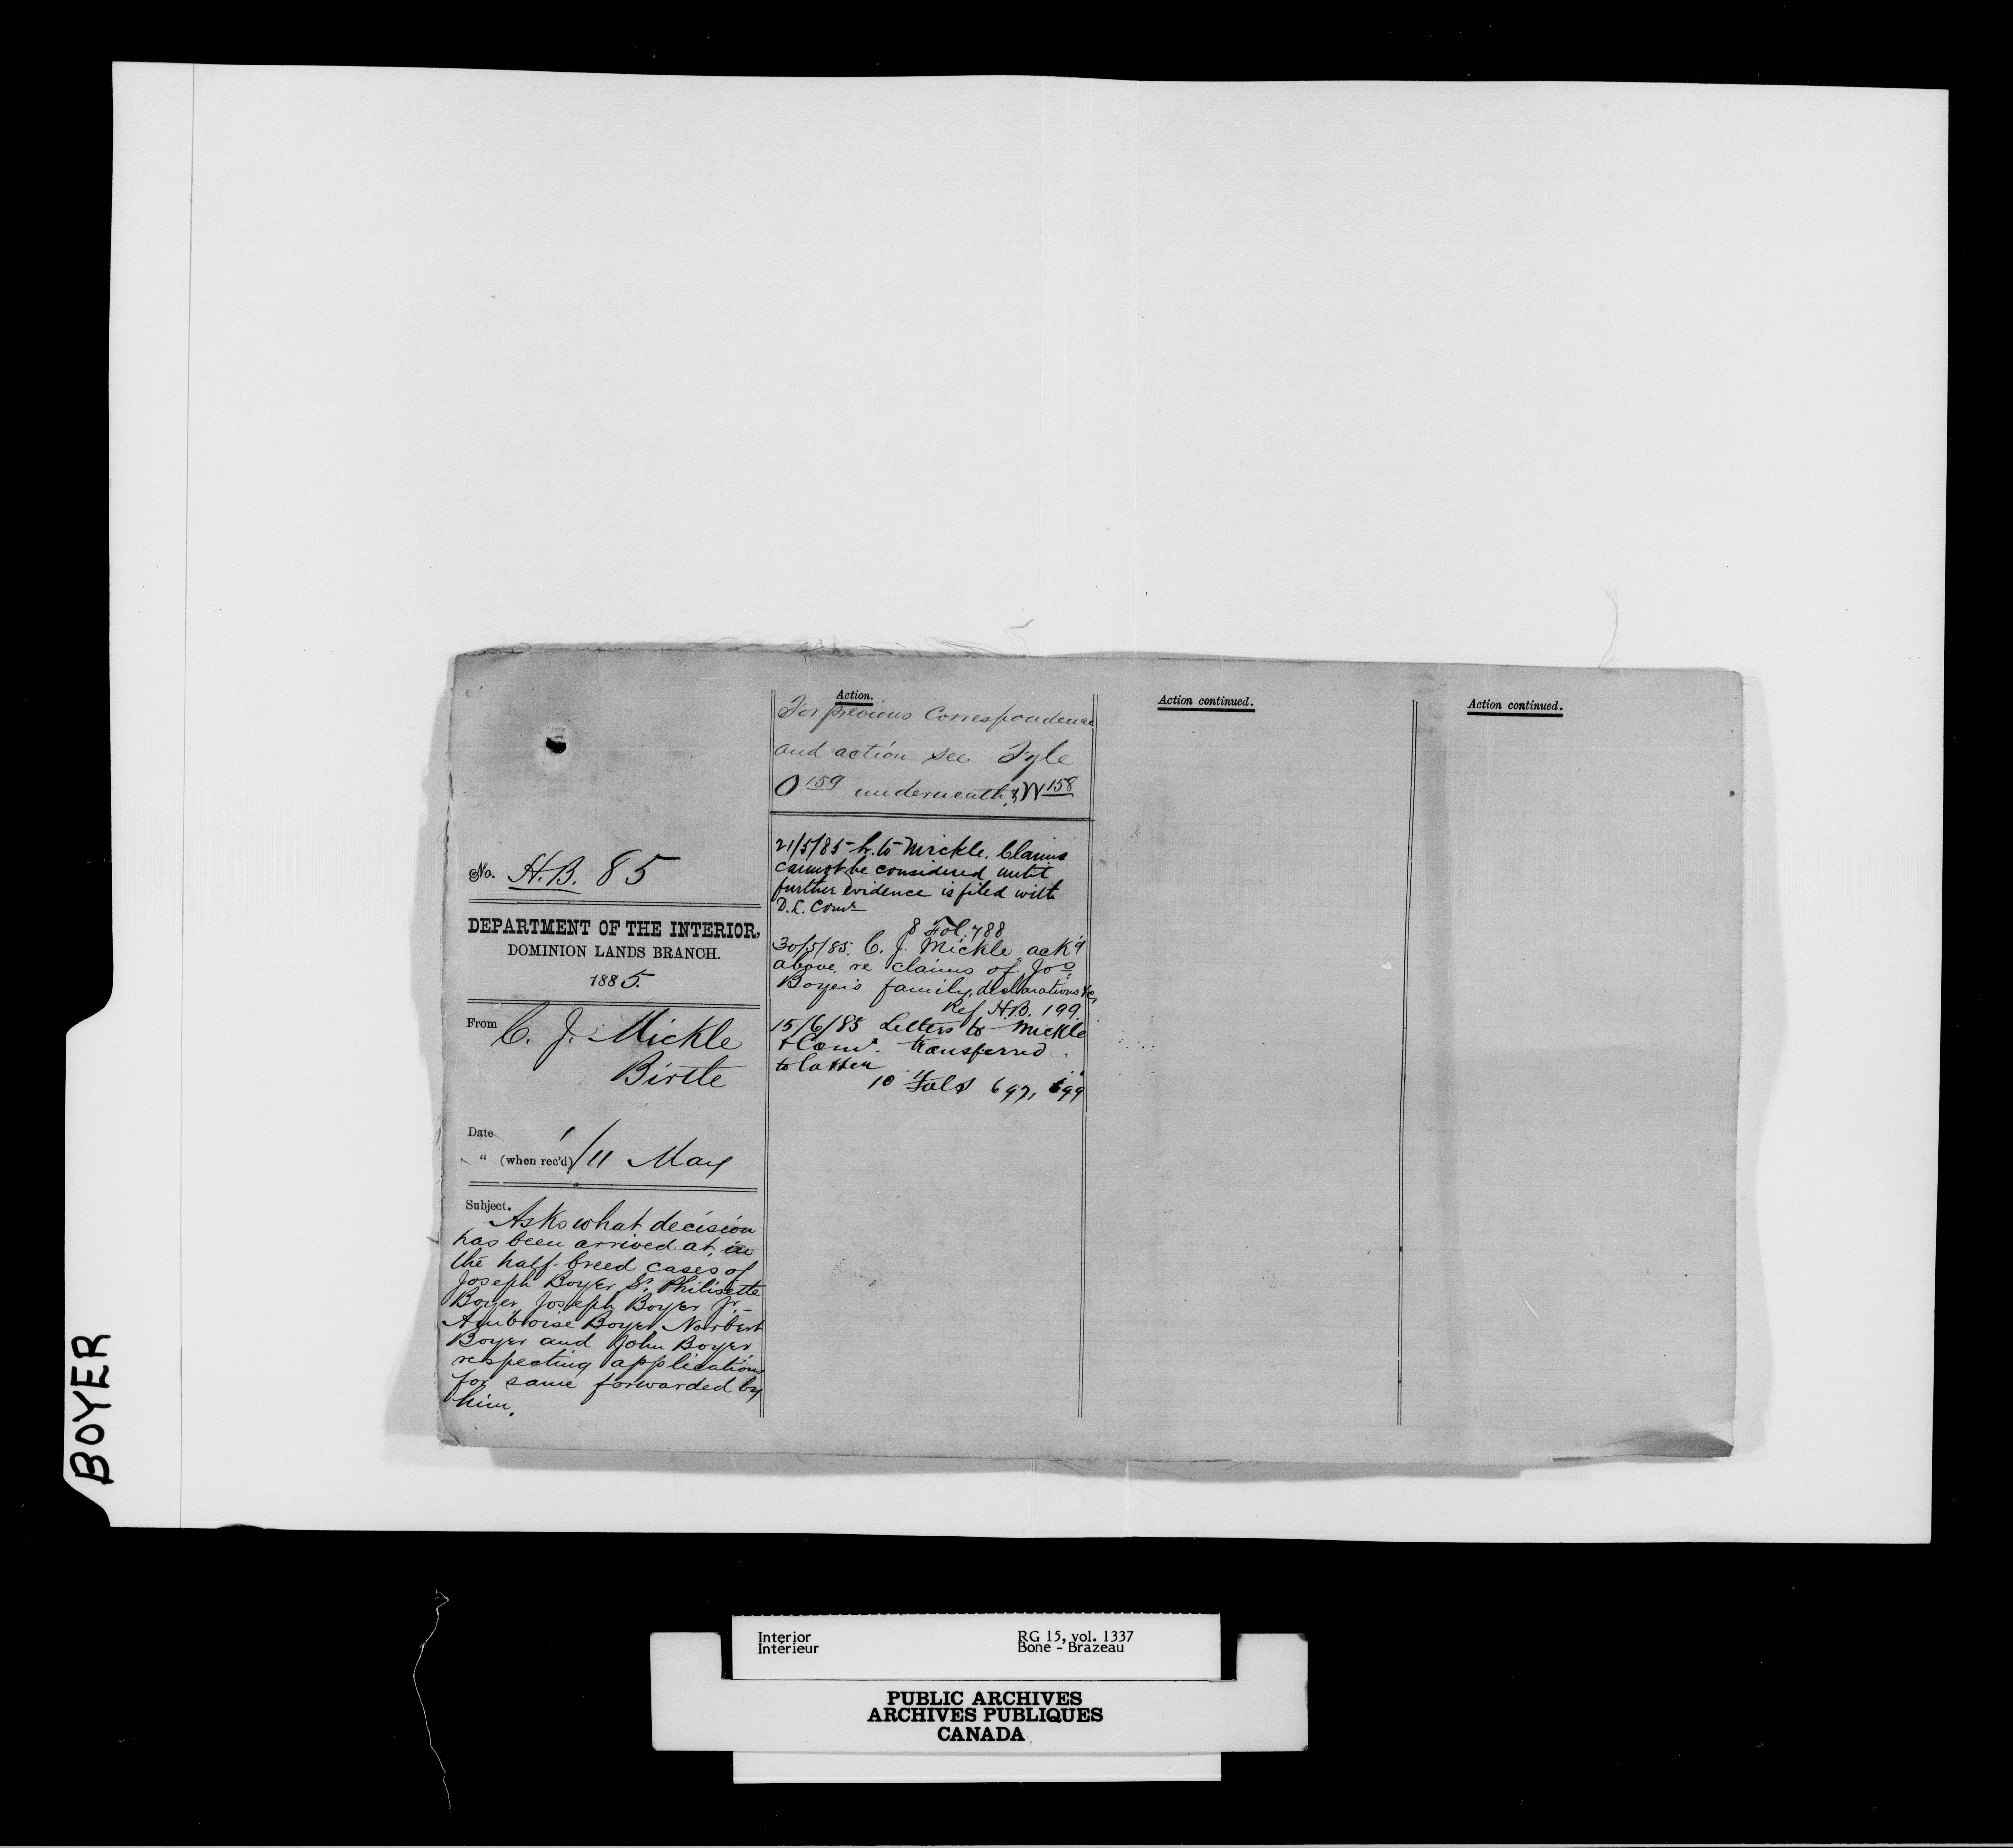 BOYER
No. H.B. 85
DEPARTMENT OF THE INTERIOR,
DOMINION LANDS BRANCH.
1885.
From C. J. Mickle
Birtle
Date 1
" (when rec'd) / 11 May
Subject.
Asks what decision
has been arrived at, in
the half-breed cases of
Joseph Boyer Sr. Philisette
Boyer, Joseph Boyer Jr. -
Ambroise Boyer, Norbert
Boyer and John Boyer
respecting applications
for same forwarded by
him.
Action.
For previous Correspondence
and action see Fyle
O 159 underneath & W 158
21/5/85 - L. to Mickle. Claims
cannot be considered until
further evidence is filed with
D.L. Comr
8 Fol. 788
30/5/85. C. J. Mickle ack'd
above re claims of Jos
Boyer's family, declarations &c,
Ref H.B. 199.
15/6/85 Letters to Mickle
& Comr. transferred
to latter
10 Fols 697, 699
Action continued.
Action continued.
Interior
Intérieur
RG 15, vol. 1337
Bone - Brazeau
PUBLIC ARCHIVES
ARCHIVES PUBLIQUES
CANADA